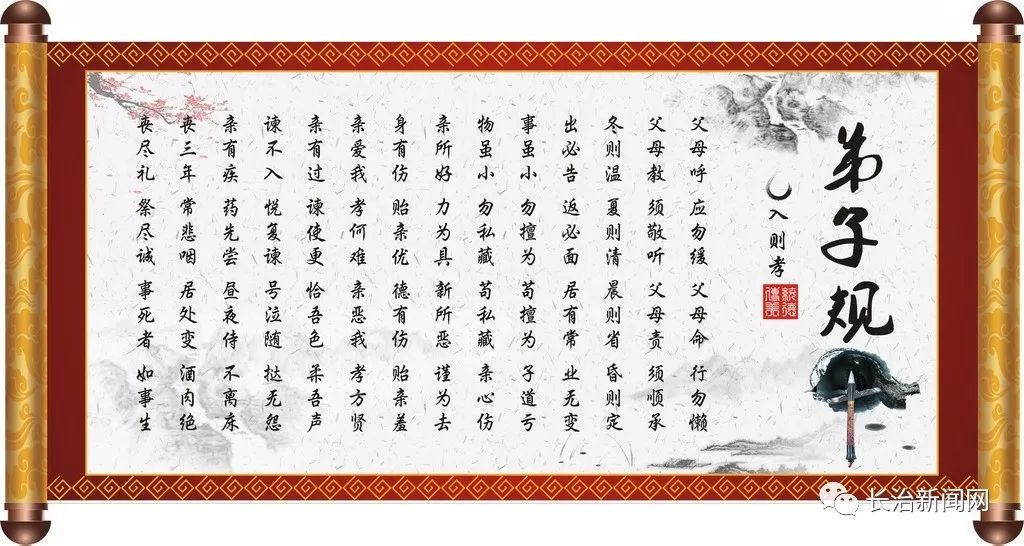 弟子规
入则孝
傳統
美德
父母呼 应勿缓 父母命 行勿懒
父母教 须敬听 父母责 须顺承
冬则温 夏则清 晨则省 昏则定
出必告 返必面 居有常 业无变
事虽小 勿擅为 苟擅为 子道亏
物虽小 勿私藏 苟私藏 亲心伤
亲所好 力为具 新所恶 谨为去
身有伤 贻亲优 德有伤 贻亲羞
亲爱我 孝何难 亲恶我 孝方贤
亲有过 谏使更 恰吾色 柔吾声
谏不入 悦复谏 号泣随 挞无怨
亲有疾 药先尝 昼夜侍 不离床
丧三年 常悲咽 居处变 酒肉绝
丧尽礼 祭尽诚 事死者 如事生
长治新闻网